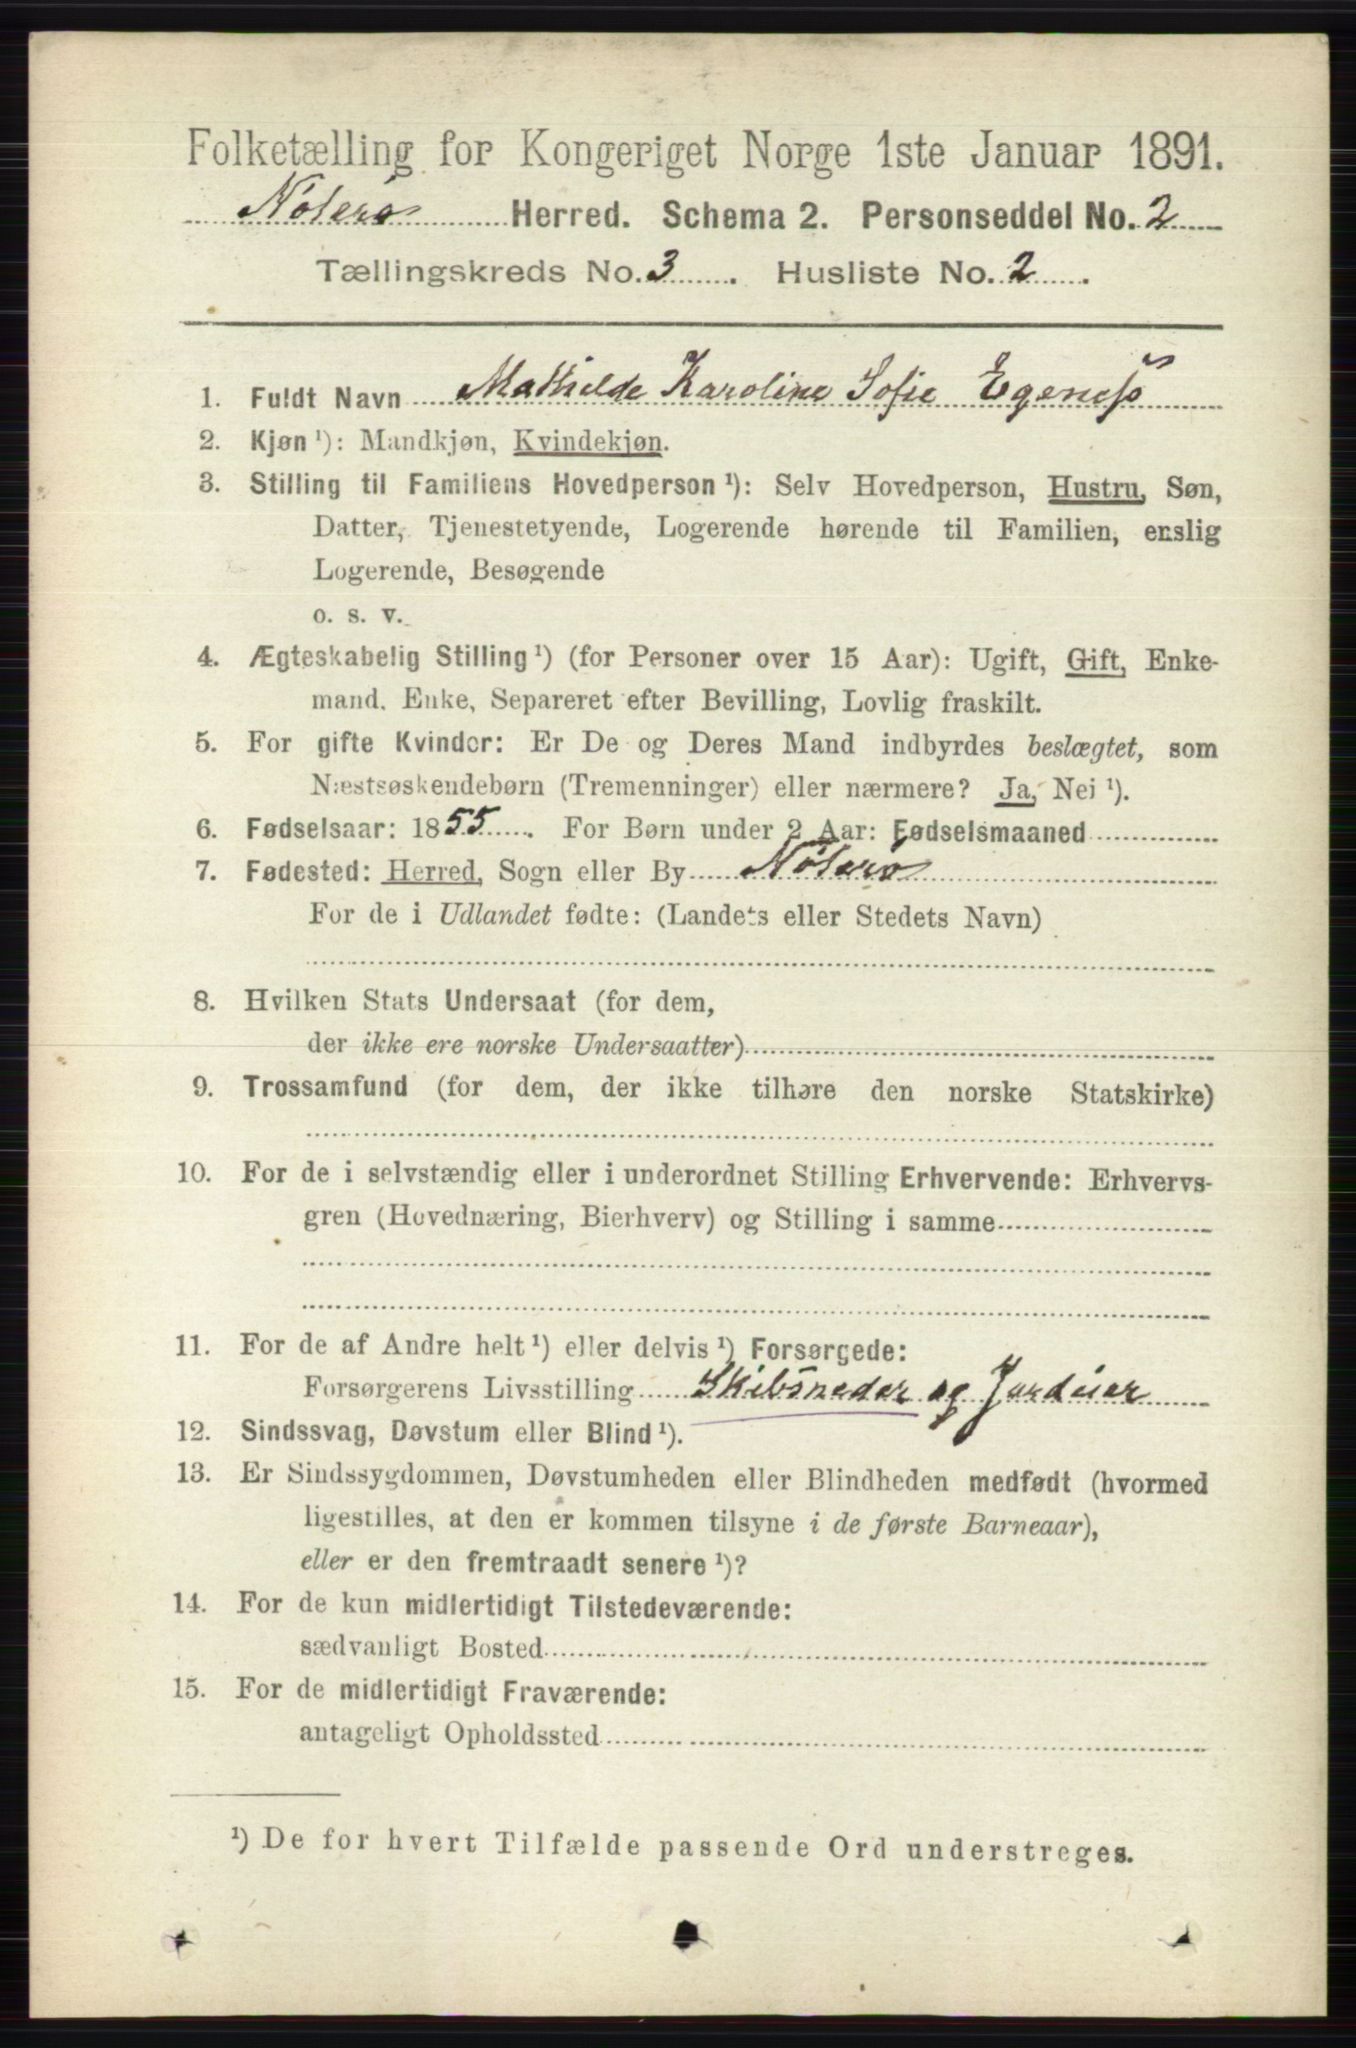 Folketælling for Kongeriget Norge 1ste Januar 1891.
Nøterø Herred. Schema 2. Personseddel No. 2
Tællingskreds No. 3. Husliste No. 2.
1. Fuldt Navn Mathilde Karoline Sofie Egenes
2. Kjøn ¹): Mandkjøn, Kvindekjøn.
3. Stilling til Familiens Hovedperson ¹): Selv Hovedperson, Hustru, Søn,
Datter, Tjenestetyende, Logerende hørende til Familien, enslig
Logerende, Besøgende
o. s. v.
4. Ægteskabelig Stilling ¹) (for Personer over 15 Aar): Ugift, Gift, Enke-
mand, Enke, Separeret efter Bevilling, Lovlig fraskilt.
5. For gifte Kvinder: Er De og Deres Mand indbyrdes beslægtet, som
Næstsøskendebørn (Tremenninger) eller nærmere? Ja, Nei ¹).
6. Fødselsaar: 1855. For Børn under 2 Aar: Fødselsmaaned
7. Fødested: Herred, Sogn eller By Nøterø
For de i Udlandet fødte: (Landets eller Stedets Navn)
8. Hvilken Stats Undersaat (for dem,
der ikke ere norske Undersaatter)
9. Trossamfund (for dem, der ikke tilhøre den norske Statskirke)
10. For de i selvstændig eller i underordnet Stilling Erhvervende: Erhvervs-
gren (Hovednæring, Bierhverv) og Stilling i samme
11. For de af Andre helt ¹) eller delvis ¹) Forsørgede:
Forsørgerens Livsstilling Skibsreder og Jordeier
12. Sindssvag, Døvstum eller Blind ¹).
13. Er Sindssygdommen, Døvstumheden eller Blindheden medfødt (hvormed
ligestilles, at den er kommen tilsyne i de første Barneaar),
eller er den fremtraadt senere ¹)?
14. For de kun midlertidigt Tilstedeværende:
sædvanligt Bosted
15. For de midlertidigt Fraværende:
antageligt Opholdssted
¹) De for hvert Tilfælde passende Ord understreges.